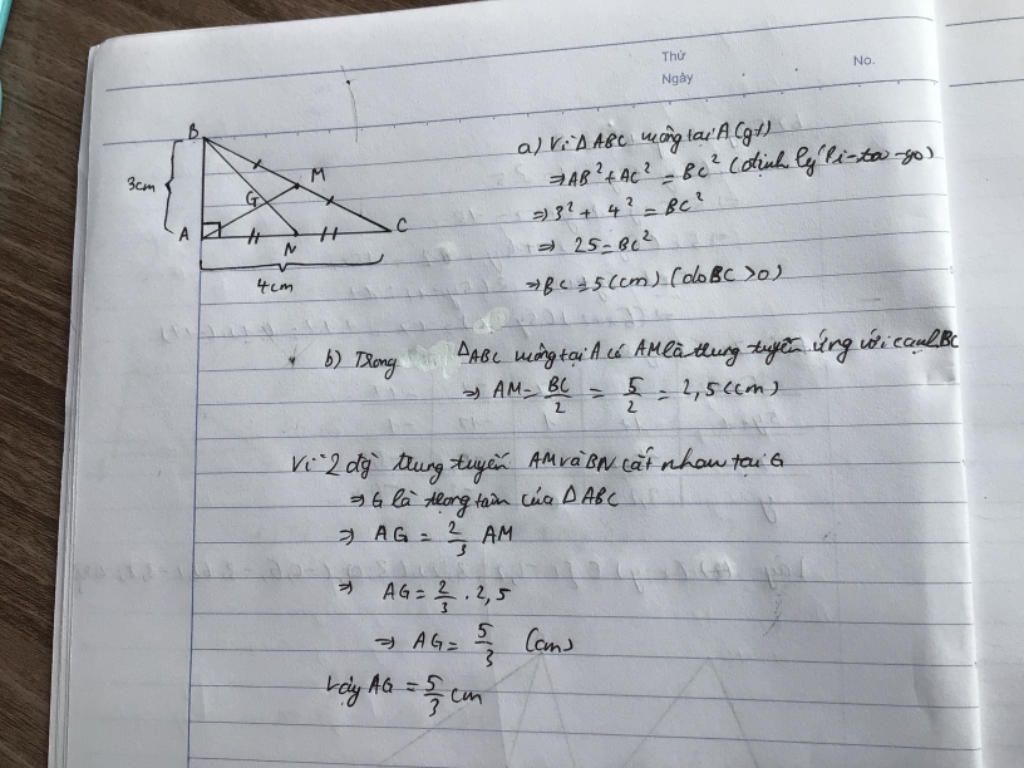 Thứ
Ngày
No.
B
3cm
M
G
A
N
C
4cm
a) Vì ΔABC vuông tại A (gt)
⇒ AB² + AC² = BC² (định lý Pi-ta-go)
⇒ 3² + 4² = BC²
⇒ 25 = BC²
⇒ BC = 5 (cm) (do BC > 0)
b) Trong ΔABC vuông tại A có AM là trung tuyến ứng với cạnh BC
⇒ AM = BC/2 = 5/2 = 2,5 (cm)
Vì 2 đg trung tuyến AM và BN cắt nhau tại G
⇒ G là trọng tâm của ΔABC
⇒ AG = 2/3 AM
⇒ AG = 2/3 . 2,5
⇒ AG = 5/3 (cm)
Vậy AG = 5/3 cm